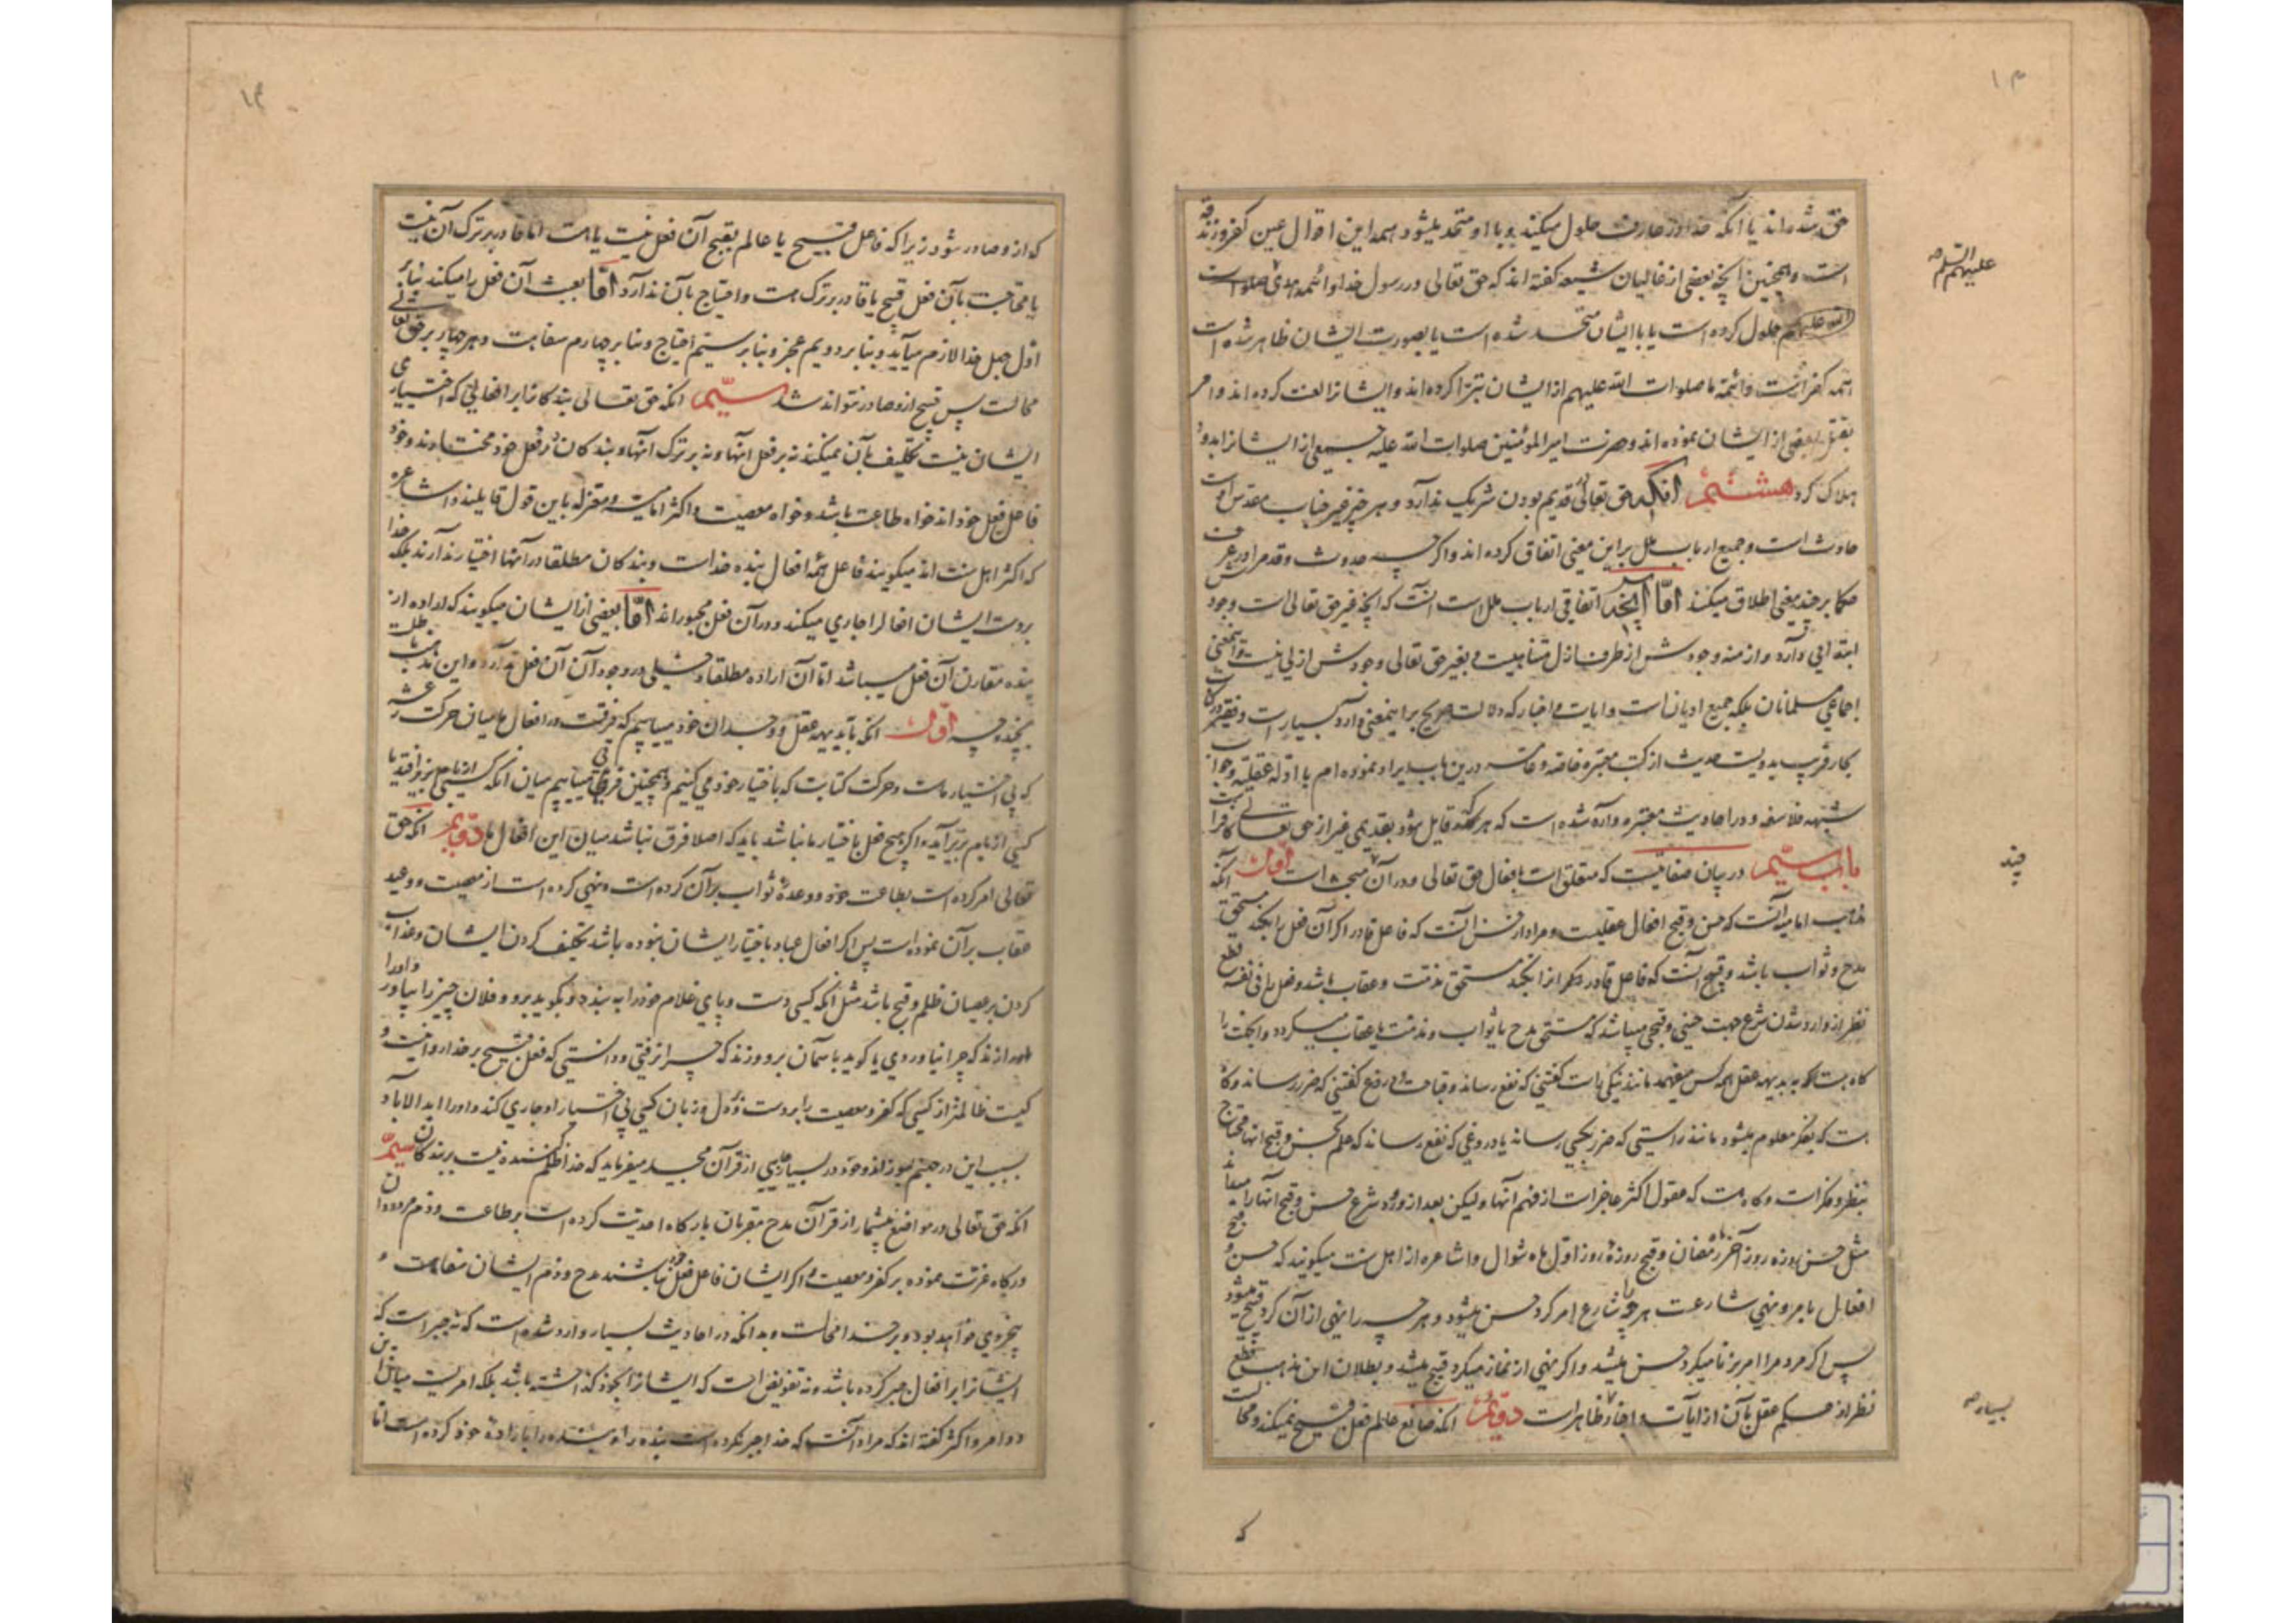 ۱۳
حق شده‌اند یا آنکه خدا در عارف حلول میکند و با او متحد میشود همه این اقوال عین کفر و زندقه
است و همچنین آنچه بعضی از غالیان شیعه گفته‌اند که حق تعالی در رسول خدا و ائمه هدی صلوات
الله علیهم حلول کرده است یا با ایشان متحد شده است یا بصورت ایشان ظاهر شده است
همه کفر است و ائمه ما صلوات الله علیهم از ایشان تبرا کرده‌اند و ایشانرا لعنت کرده‌اند و امر
بقتل بعضی از ایشان نموده‌اند و حضرت امیر المؤمنین صلوات الله علیه جمعی از ایشانرا بدود
هلاک کرد هشتم آنکه حق تعالی در قدیم بودن شریک ندارد و هر چیز غیر جناب مقدس اوست
حادث است و جمیع ارباب ملل بر این معنی اتفاق کرده‌اند و اگر چه حدوث و قدم را در عرف
حکما بر چند معنی اطلاق میکنند اما آنچه اتفاقی ارباب ملل است آنست که آنچه غیر حق تعالی است وجودش
ابتدائی دارد و ازمنه وجودش از طرف ازل متناهیست و بغیر حق تعالی وجودش ازلی نیست و این معنی
اجماعی مسلمانان بلکه جمیع ادیان است و آیات و اخبار که دلالت صریح بر اینمعنی دارد بسیار است و فقیر در کتاب
بحار قریب بدویست حدیث از کتب معتبره خاصه و عامه درین باب ایراد نموده‌ام با ادله عقلیه و جواب
شبهه فلاسفه و در احادیث معتبره وارد شده است که هر که قایل شود بقدیمی غیر از حق تعالی کافر است
باب سیّم در بیان صفاتیست که متعلق است بافعال حق تعالی و در آن مبحثها است اول آنکه
مذهب امامیه آنست که حسن و قبح افعال عقلیست و مراد از حسن آنست که فاعل قادر اگر آن فعل را بکند مستحق
مدح و ثواب باشد و قبیح آنست که فاعل قادر دیگر از بکند مستحق مذمت و عقاب باشد و فعل را فی نفسه قطع
نظر از وارد شدن شرع جهت حسنی و قبحی میباشد که مستحق مدح یا ثواب و مذمت یا عقاب میگردد و آنجهت را
گاه هست که ببدیهه عقل همه کس میفهمد مانند نیکی راست گفتنی که نفع رساند و قباحت دروغ گفتنی که ضرر رساند و گاه
هست که بفکر معلوم میشود مانند راستی که ضرر بکسی رساند یا دروغی که نفع رساند که علم بحسن و قبح آنها محتاج
بنظر و فکر است و گاه هست که عقول اکثر عاجز است از فهم آنها ولیکن بعد از ورود شرع حسن و قبح آنها را میفهمند
مثل حسن روزه روز آخر رمضان و قبح روزه روز اول ماه شوال و اشاعره از اهل سنت میگویند که حسن و قبح
افعال بامر و نهی شارعست هر چه را شارع امر کرد حسن میشود و هر چه را نهی از آن کرد قبیح میشود
پس اگر مردم را امر بزنا میکرد حسن میشد و اگر نهی از نماز میکرد قبیح میشد و بطلان این مذهب قطع
نظر از حکم عقل بآن از آیات و اخبار ظاهر است دویّم آنکه صانع عالم فعل قبیح نمیکند و محالست
علیهم السلام
چند
بسیار
که
۱۴
که از او صادر شود زیرا که فاعل قبیح یا عالم بقبح آن فعل نیست یا هست اما قادر بر ترک آن نیست
یا محتاجست بآن فعل قبیح یا قادر بر ترک هست و احتیاج بآن ندارد اما بعبث آن فعل را میکند بنا بر
اول جهل خدا لازم میآید و بنا بر دویم عجز و بنا بر سیّم احتیاج و بنا بر چهارم سفاهت و هر چهار بر حق تعالی
محالست پس قبیح از او صادر نتواند شد سیّم آنکه حق تعالی بندگانرا بر افعالی که اختیاری
ایشان نیست تکلیف بآن نمیکند نه بر فعل آنها و نه بر ترک آنها و بندگان در فعل خود مختارند و خود
فاعل فعل خودند خواه طاعت باشد و خواه معصیت و اکثر امامیه و معتزله باین قول قایلند و اشاعره
که اکثر اهل سنت‌اند میگویند فاعل همه افعال بنده خداست و بندگان مطلقا در آنها اختیار ندارند بلکه خدا
بر دست ایشان افعال را جاری میکند و در آن فعل مجبورند اما بعضی از ایشان میگویند که اراده از
بنده مقارن آن فعل میباشد اما آن اراده مطلقا دخلی در وجود آن فعل ندارد و این مذهب باطلست
بچند وجه اول آنکه ببدیهه عقل و وجدان خود میبابیم که فرقست در افعال ما میان حرکت رعشه
که بی اختیار ماست و حرکت کتابت که باختیار خود می کنیم و همچنین فرقی میبابیم میان آنکه کسی از بام بزیر افتد یا
کسی از بام بزیر آید و اگر هیچ فعل باختیار ما نباشد باید که اصلا فرق نباشد میان این افعال ما دویّم آنکه حق
تعالی امر کرده است بطاعت خود و وعدهٔ ثواب بر آن کرده است و نهی کرده است از معصیت و وعید
عقاب بر آن نموده است پس اگر افعال عباد باختیار ایشان نبوده باشد تکلیف کردن ایشان و عذاب
کردن بر عصیان ظلم و قبیح باشد مثل آنکه کسی دست و پای غلام خود را ببندد و بگوید برو و فلان چیز را بیاور و او را
بزند که چرا نیاوردی یا گوید باسمان برو و زند که چرا نرفتی و دانستی که فعل قبیح بر خدا روا نیست و
کیست ظالمتر از کسی که کفر و معصیت را بر دست و دل و زبان کسی بی اختیار او جاری کند و او را ابد الاباد
بسبب این در جهنم بسوزاند و خود در بسیار جایی از قرآن مجید میفرماید که خدا ظلم کننده نیست بر بندگان سیّم
آنکه حق تعالی در مواضع بیشمار از قرآن مدح مقربان بارگاه احدیت کرده است بر طاعت و ذم مردودان
درگاه عزت نموده بر کفر و معصیت و اگر ایشان فاعل فعل خود نباشند مدح و ذم ایشان سفاهت و
خواهد بود و بر خدا محالست و بدانکه در احادیث بسیار وارد شده است که نه جبر است که
ایشانرا بر افعال جبر کرده باشد و نه تفویض است که ایشانرا بخود گذاشته باشد بلکه امریست میان این
دو امر و اکثر گفته‌اند که مراد آنست که خدا جبر نکرده است بنده را و بنده را باراده خود کرده است اما